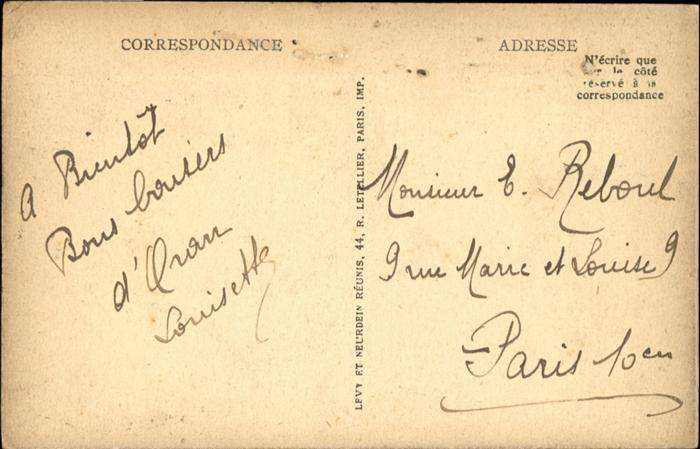 CORRESPONDANCE
A Bientôt
Bons baisers
d'Oran
Louisette
LEVY ET NEURDEIN RÉUNIS, 44, R. LETELLIER, PARIS, IMP.
ADRESSE
N'écrire que
sur le côté
réservé à la
correspondance
Monsieur E. Reboul
9 rue Marie et Louise 9
Paris 10em